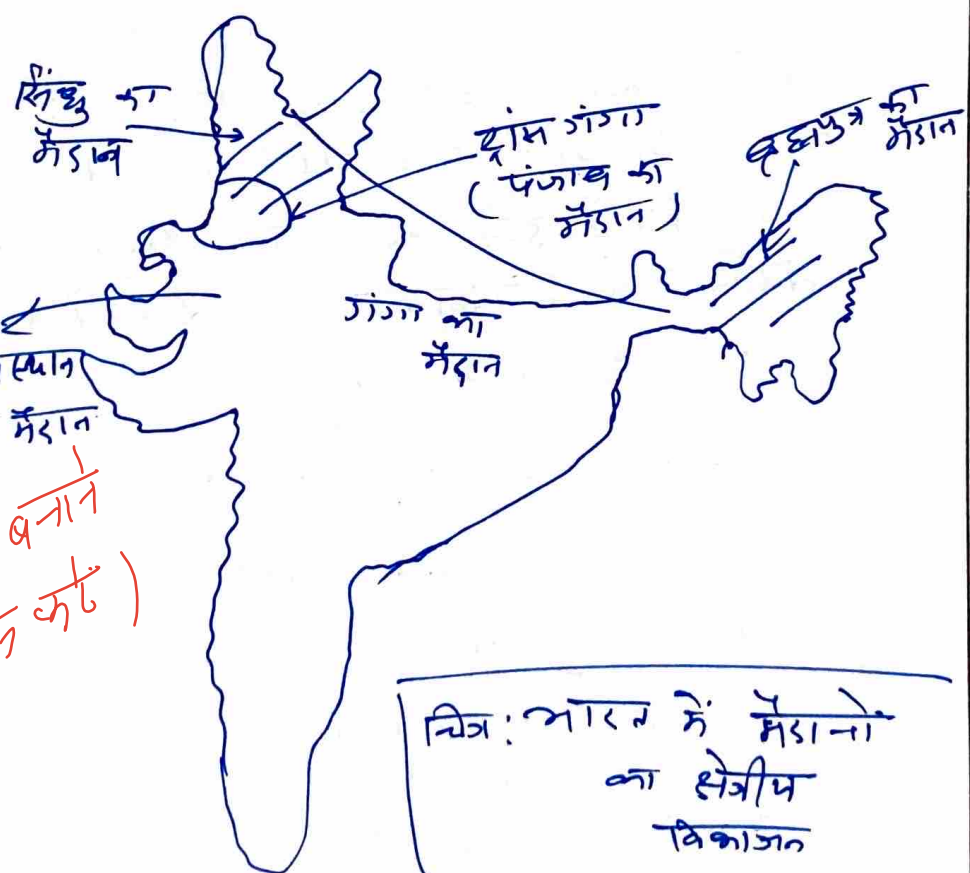 सिंधु का
मैदान
ट्रांस गंगा
(पंजाब का
मैदान)
ब्रह्मपुत्र का
मैदान
गंगा का
मैदान
स्थान
मैदान
बनाने
करें)
चित्र: भारत में मैदानों
का क्षेत्रीय
विभाजन